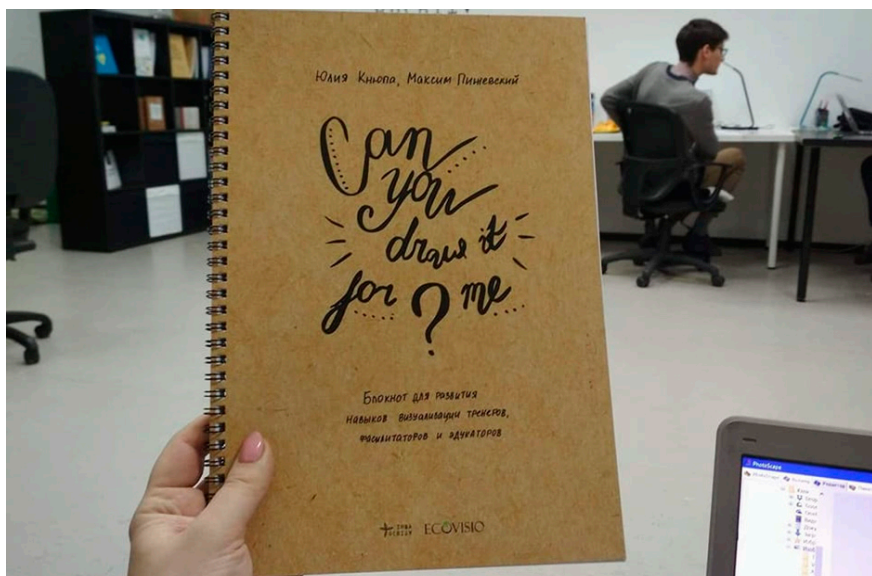 Юлия Кнюпа, Максим Пишевский
Can
you
draw it
for ? me
Блокнот для развития
навыков визуализации тренеров,
фасилитаторов и эдукаторов
ECOVISIO
PhotoScape